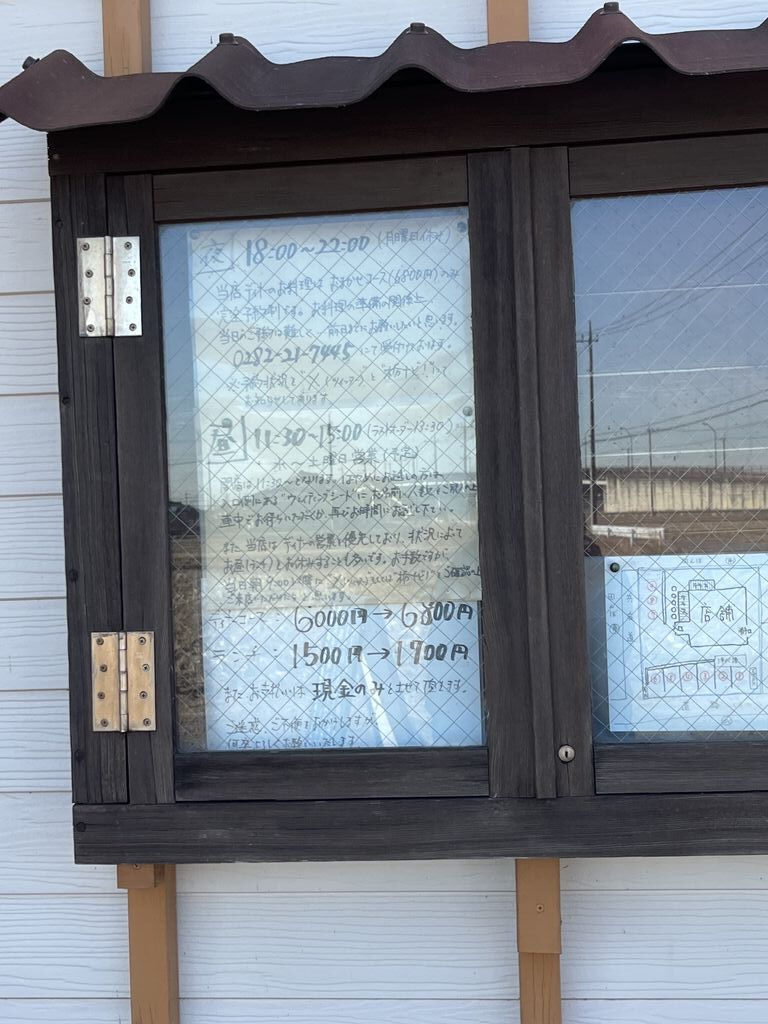 夜 18:00～22:00 (月曜日休み)
当店ディナーのお料理は おまかせコース(6800円)のみ
完全予約制です。お料理の準備の関係上、
当日のご予約は難しく、前日までにお願いしたいと思います。
0282-21-7445 にて受付けております。
※予約状況を "X(ツイッター)" と "栃ナビ!" にて
お知らせしております
昼 11:30～15:00 (ラストオーダー13:30)
水～土曜日営業(予定)
開店は11:30～となります。
入口横にある"ウェイティングシート"に お名前、人数をご記入の上
車中でお待ちいただくか、再びお時間にお越し下さい。
また 当店は ディナーの営業を優先しており、状況によって
お昼(ランチ)をお休みすることも多いです。お手数ですが、
ディナーコース: 6000円→6800円
ランチ: 1500円→1900円
またお支払いは 現金のみとさせて頂きます。
ご迷惑、ご不便をおかけしますが、
何卒よろしくお願いいたします
店舗